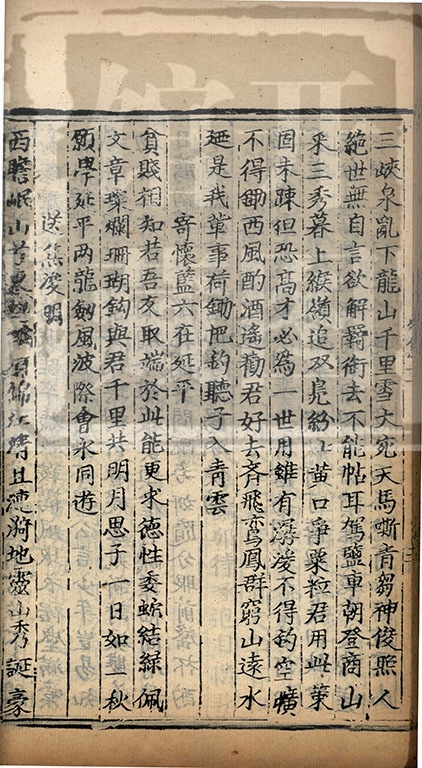 三峽泉亂下龍山千里雪大宛天馬嘶青芻神俊照人
絶世無自言欲解羇銜去不能帖耳駕鹽車朝登商山
采三秀暮上緱嶺追双鳧紛〻黄口爭粟粒君用此策
固未踈但恐髙才必為一世用雖有潺湲不得釣空壙
不得鋤西風酌酒遙勸君好去斉飛鸞鳳群窮山遠水
廼是我軰事荷鋤把釣聽子入青雲
寄懷藍六在延平
貧賤相知若吾友取端於此能更求德性委蛇結緑佩
文章璨爛珊瑚鈎與君千里共明月思子一日如三秋
願學延平两龍劒風波際會永同遊
送焦浚明
西瞻岷山昔東錦江清且漣漪地靈山秀誕豪